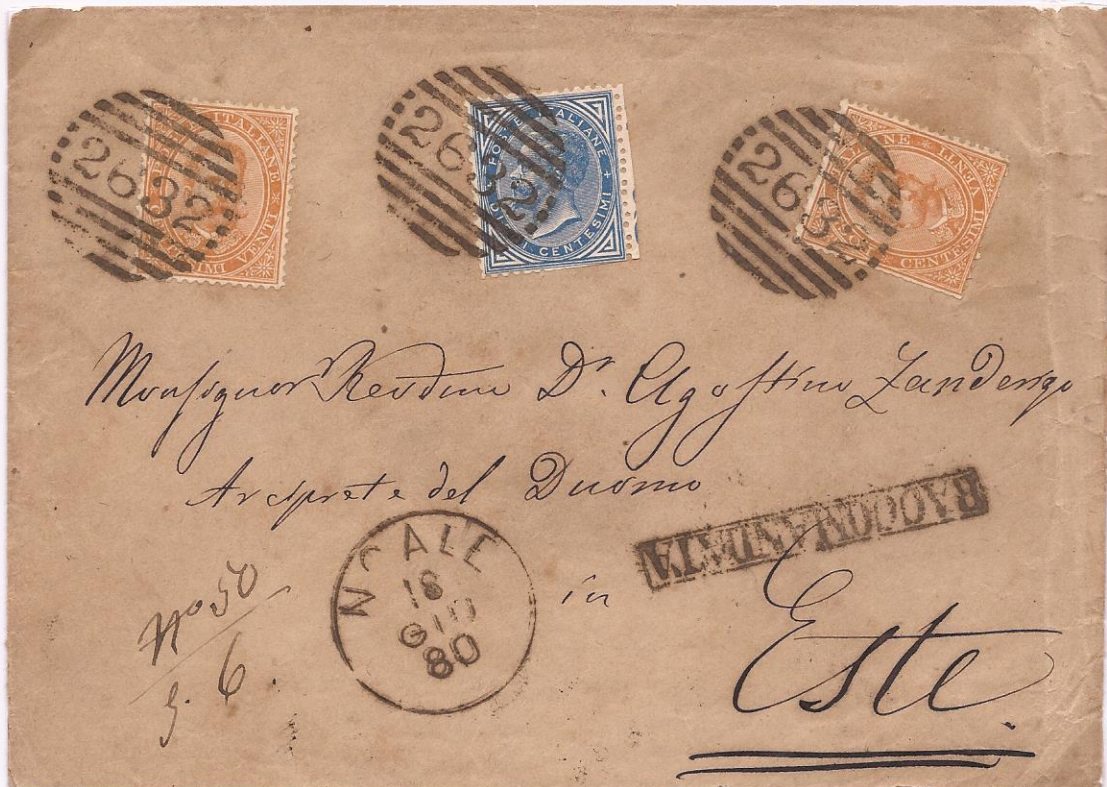 2632
POSTE ITALIANE VENTI CENTESIMI
2632
POSTE ITALIANE + DIECI CENTESIMI
2632
POSTE ITALIANE VENTI CENTESIMI
Monsignor Revdmo Dr. Agostino Zanderigo
Arciprete del Duomo
RACCOMANDATA
NOALE
18
GIU
80
in
Este
No 50
6.